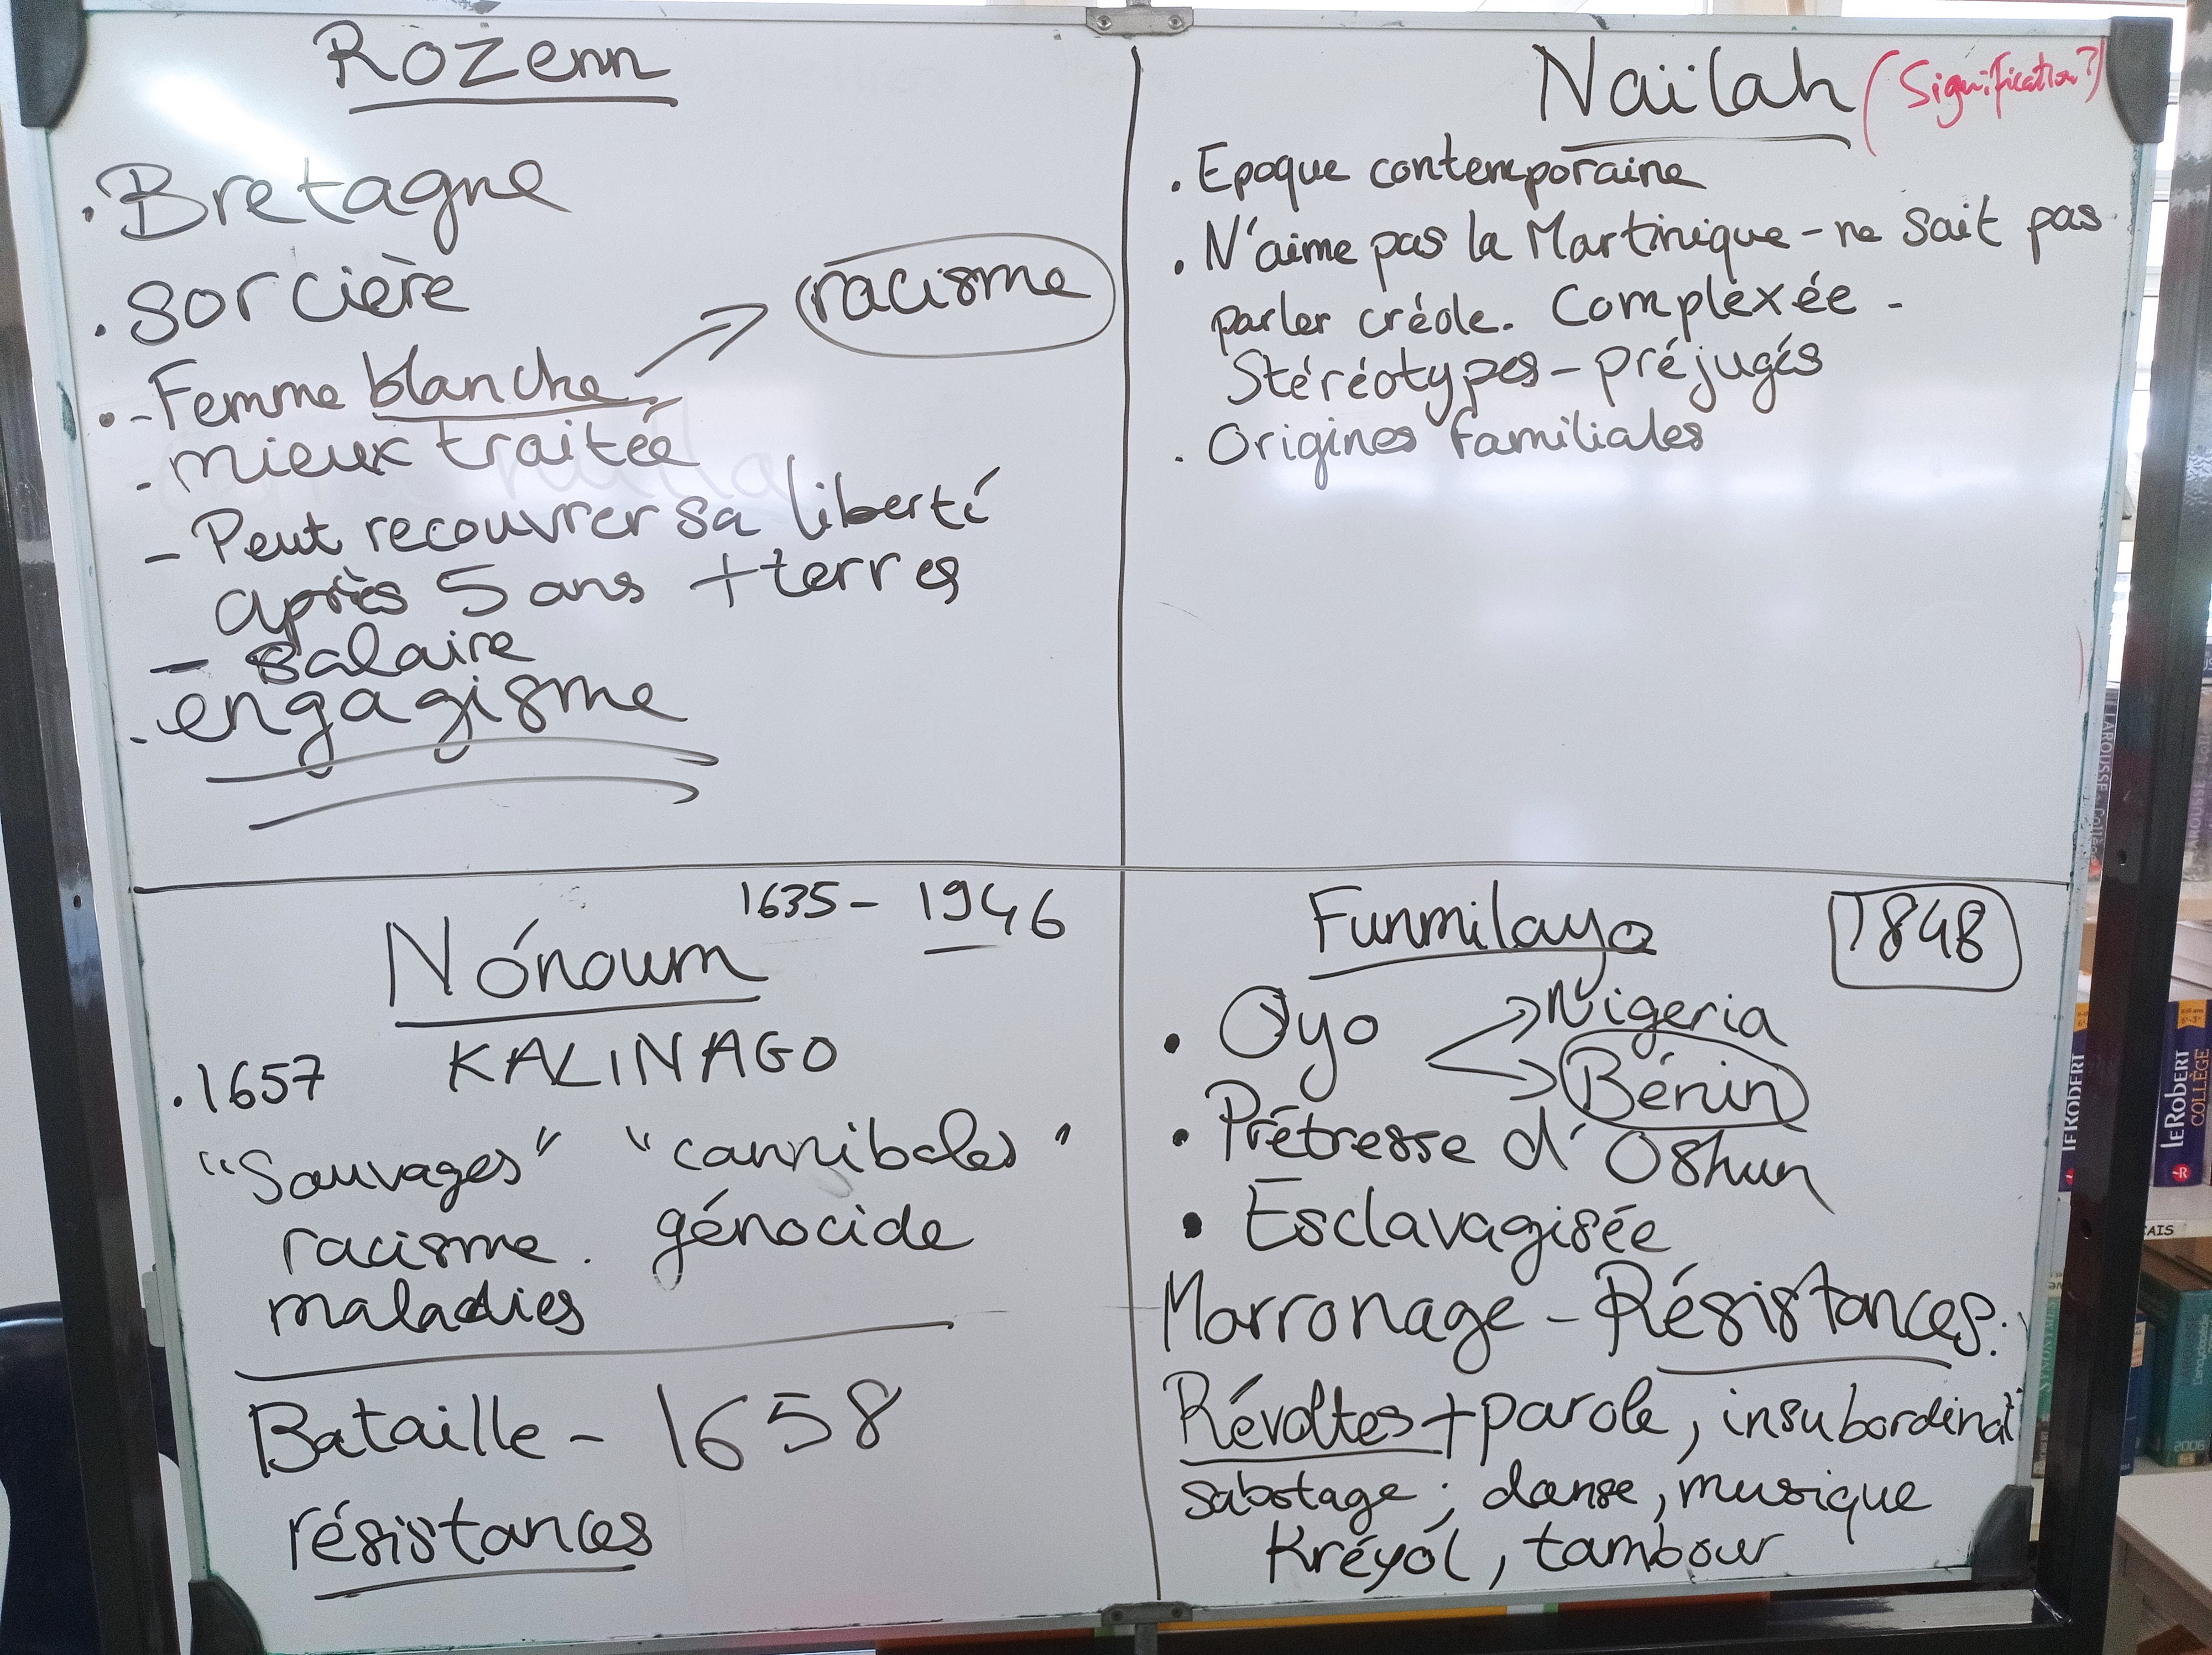 Rozenn
. Bretagne
. sorcière
racisme
. - Femme blanche
- mieux traitée
- Peut recouvrer sa liberté
après 5 ans + terres
- salaire
. engagisme
Naïlah (Signification?)
. Epoque contemporaine
. N'aime pas la Martinique - ne sait pas
parler créole. Complexée -
Stéréotypes - préjugés
. Origines familiales
1635 - 1946
Nónoum
KALINAGO
. 1657
"Sauvages" "cannibales"
racisme. génocide
maladies
Bataille - 1658
résistances
Funmilayo
1848
• Oyo
Nigeria
Bénin
• Prêtresse d'Oshun
• Esclavagisée
Marronage - Résistances.
Révoltes + parole, insubordinat°
sabotage ; danse, musique
Kréyól, tambour
LAROUSSE
LE ROBERT
LEROBERT
COLLÈGE